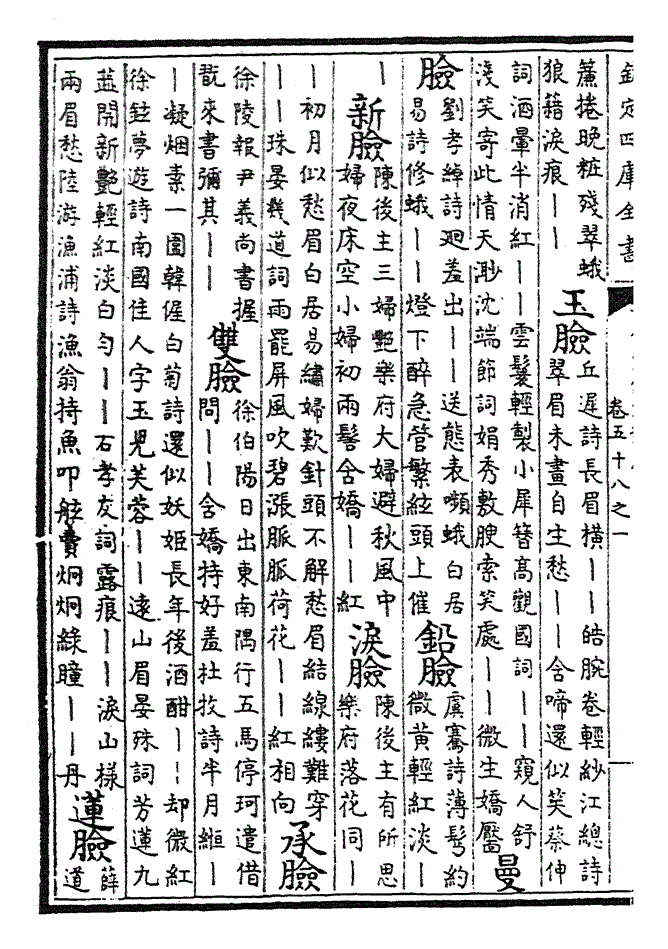 欽定四庫全書
卷五十八之一
簾捲晚粧殘翠蛾
狼籍淚痕丨丨
玉臉
丘遲詩長眉橫丨丨皓腕卷輕紗江總詩
翠眉未畫自生愁丨丨含啼還似笑蔡伸
詞酒暈半消紅丨丨雲鬟輕製小犀簪髙觀國詞丨丨窺人舒
淺笑寄此情天渺沈端節詞娟秀敷腴索笑處丨丨微生嬌靨
曼
臉
劉孝綽詩廻羞出丨丨送態表嚬蛾白居
易詩修蛾丨丨燈下醉急管繁絃頭上催
鉛臉
虞騫詩薄髩約
微黃輕紅淡丨
丨
新臉
陳後主三婦艷樂府大婦避秋風中
婦夜床空小婦初兩髻含嬌丨丨紅
淚臉
陳後主有所思
樂府落花同丨
丨初月似愁眉白居易繡婦歎針頭不解愁眉結線縷難穿
丨丨珠晏幾道詞雨罷屏風吹碧漲脈脈荷花丨丨紅相向
承臉
徐陵報尹義尚書握
翫來書彌其丨丨
雙臉
徐伯陽日出東南隅行五馬停珂遣借
問丨丨含嬌持好羞杜牧詩半月緪丨
丨凝烟素一團韓偓白菊詩還似妖姬長年後酒酣丨丨却微紅
徐鉉夢遊詩南國佳人字玉兒芙蓉丨丨逺山眉晏殊詞芳蓮九
蕋開新艷輕紅淡白勻丨丨石孝友詞露痕丨丨淚山樣
兩眉愁陸游漁浦詩漁翁持魚叩舷賣炯炯綠瞳丨丨丹
蓮臉
薛
道